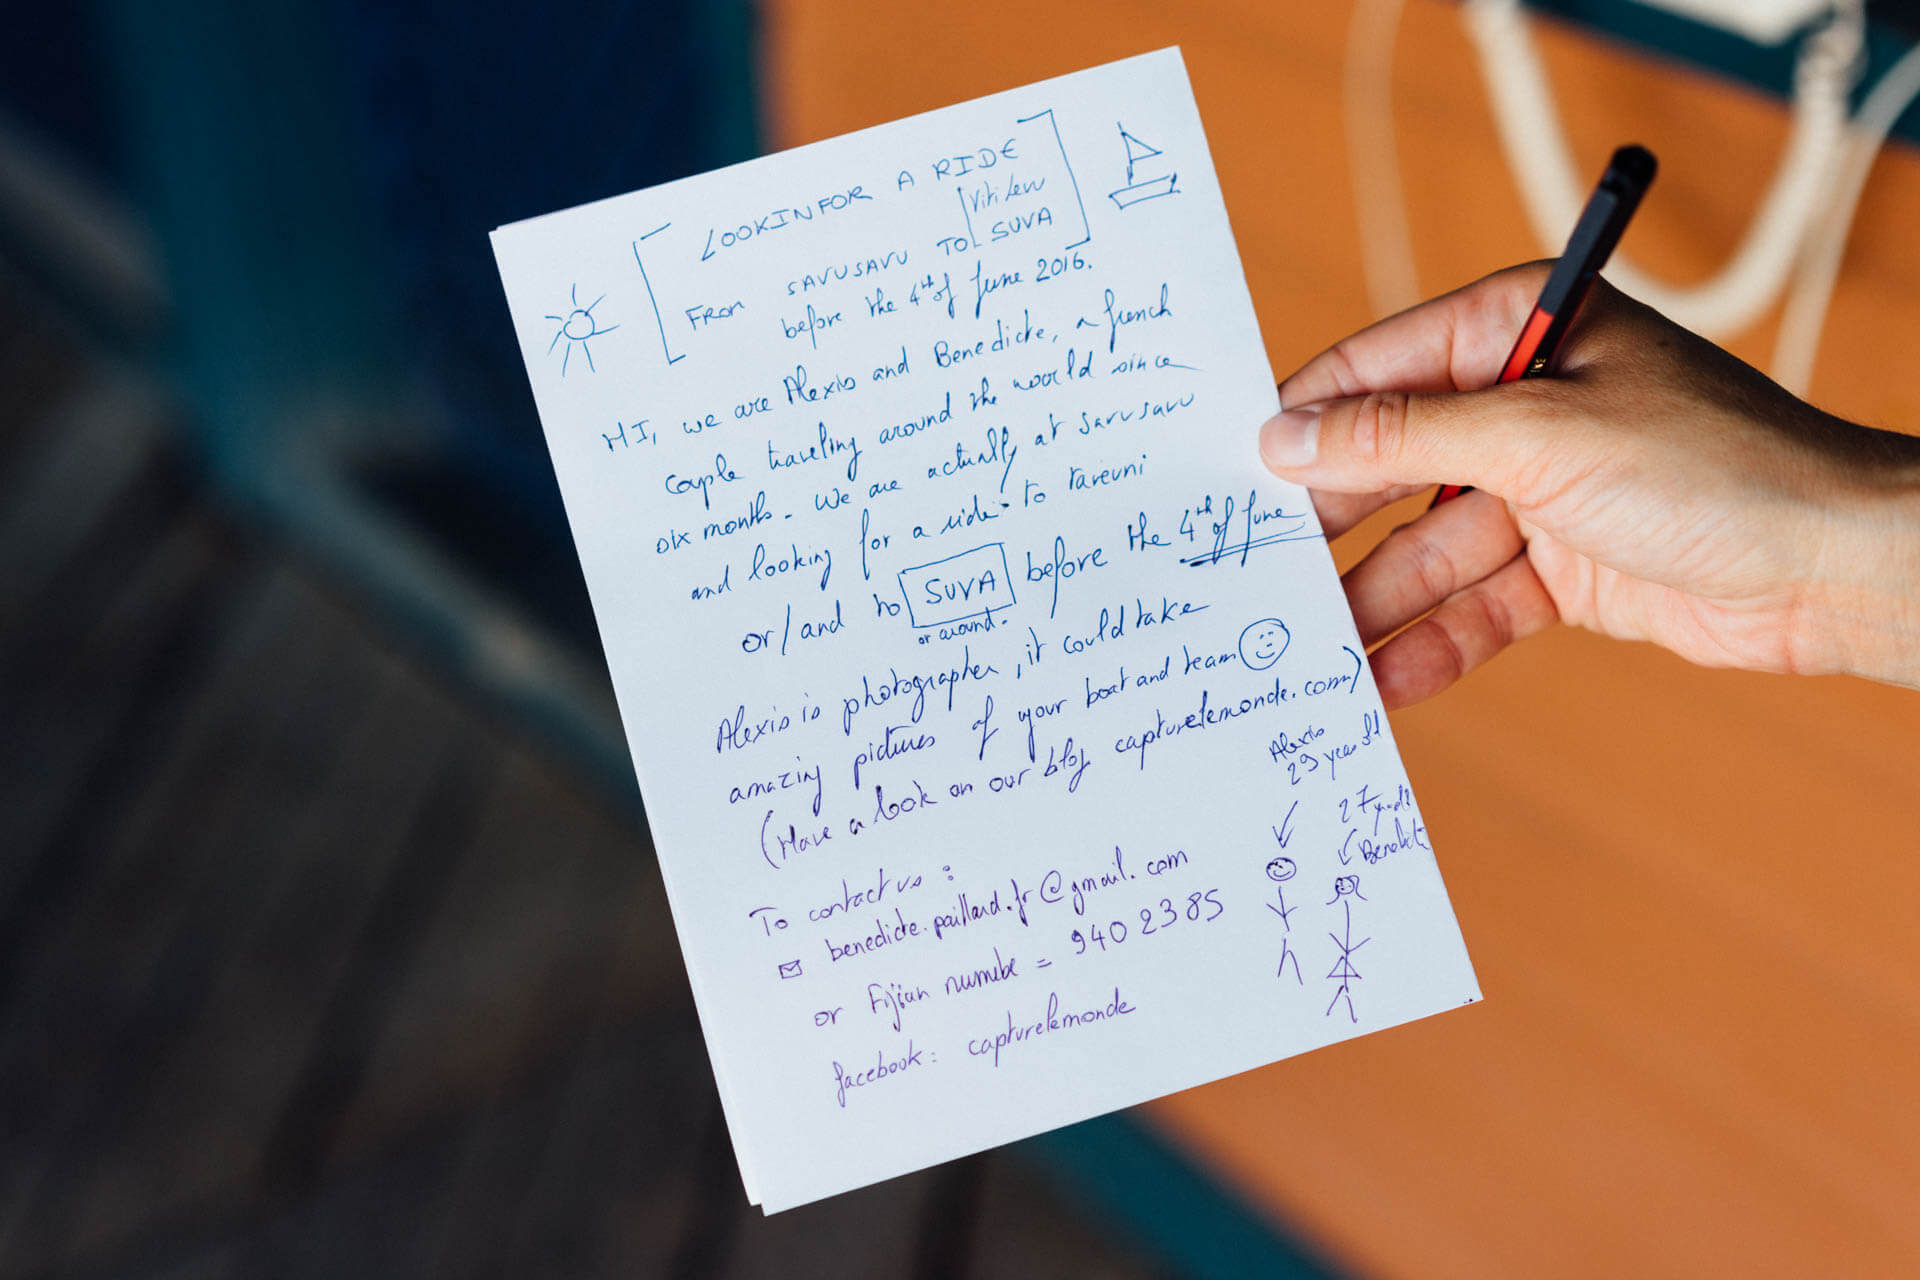 LOOKIN FOR A RIDE
From SAVUSAVU TO Viti Levu SUVA
before the 4th of June 2016.
HI, we are Alexis and Benedicte, a french
couple traveling around the world since
six months. We are actually at Savusavu
and looking for a ride to Taveuni
or/and to SUVA before the 4th of June
or around.
Alexis is photographer, it could take
amazing pictures of your boat and team
(Have a look on our blog capturelemonde.com)
Alexis
29 years old
27 y old
Benedicte
To contact us :
benedicte.paillard.fr@gmail.com
or Fijian numbe = 940 2385
facebook: capturelemonde